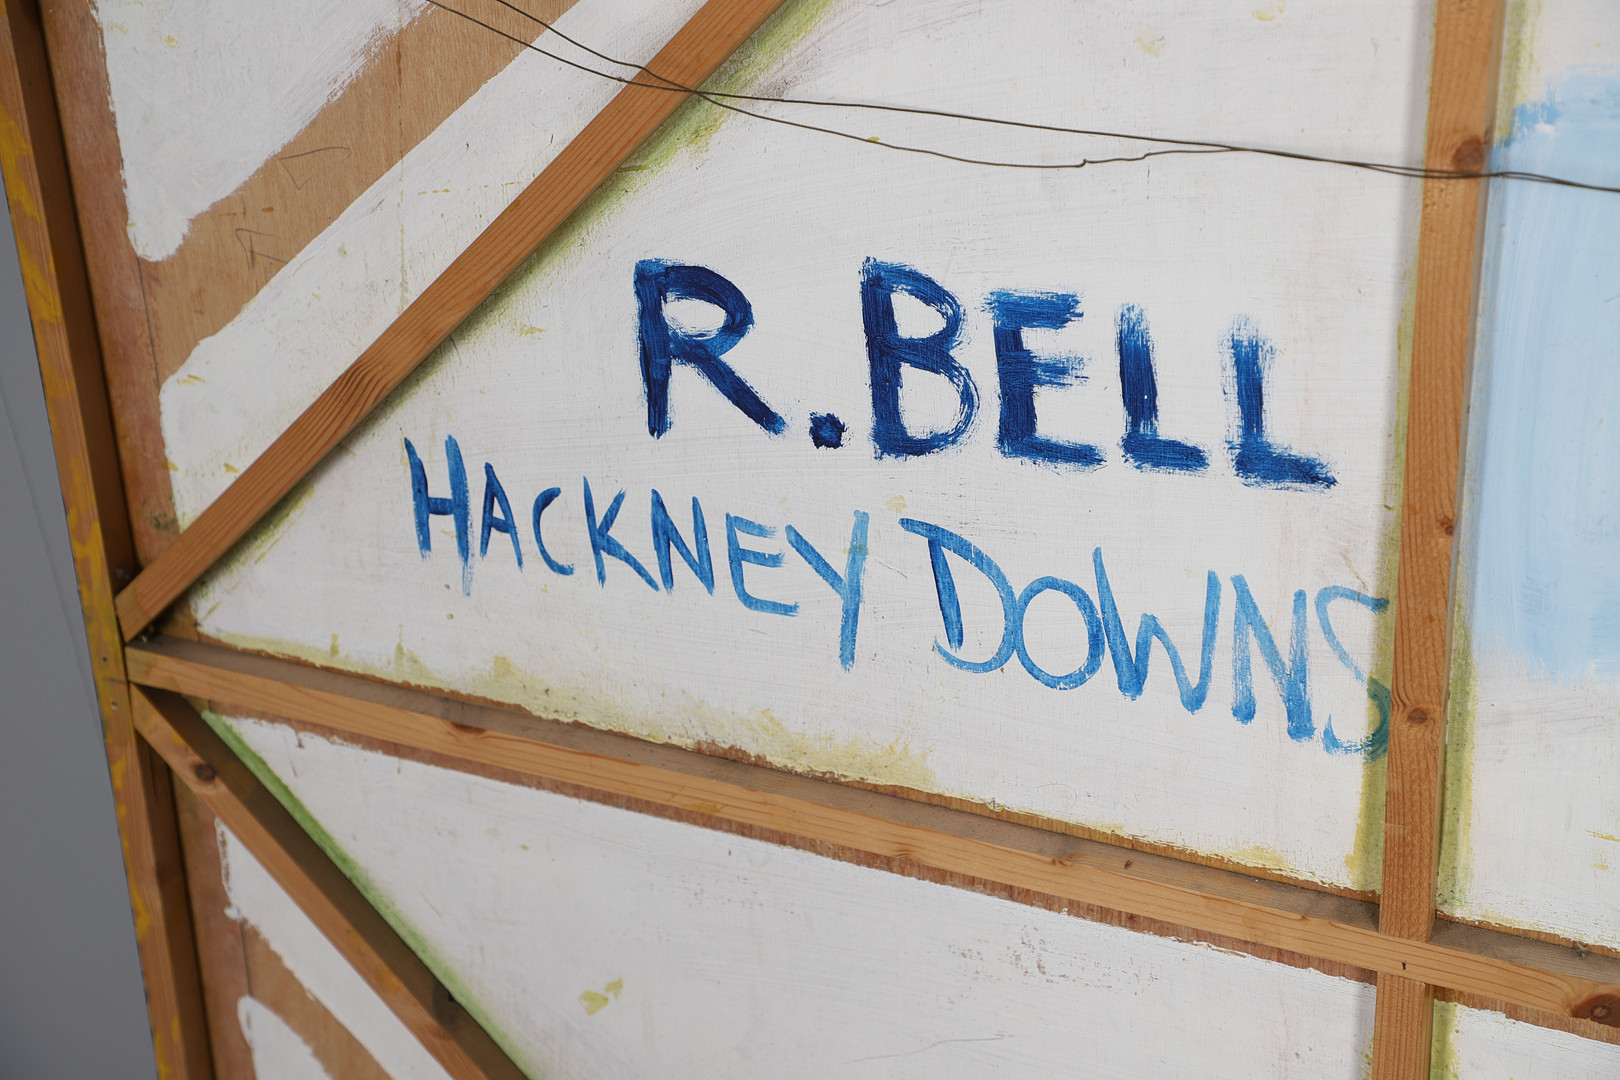 R.BELL
HACKNEY DOWNS